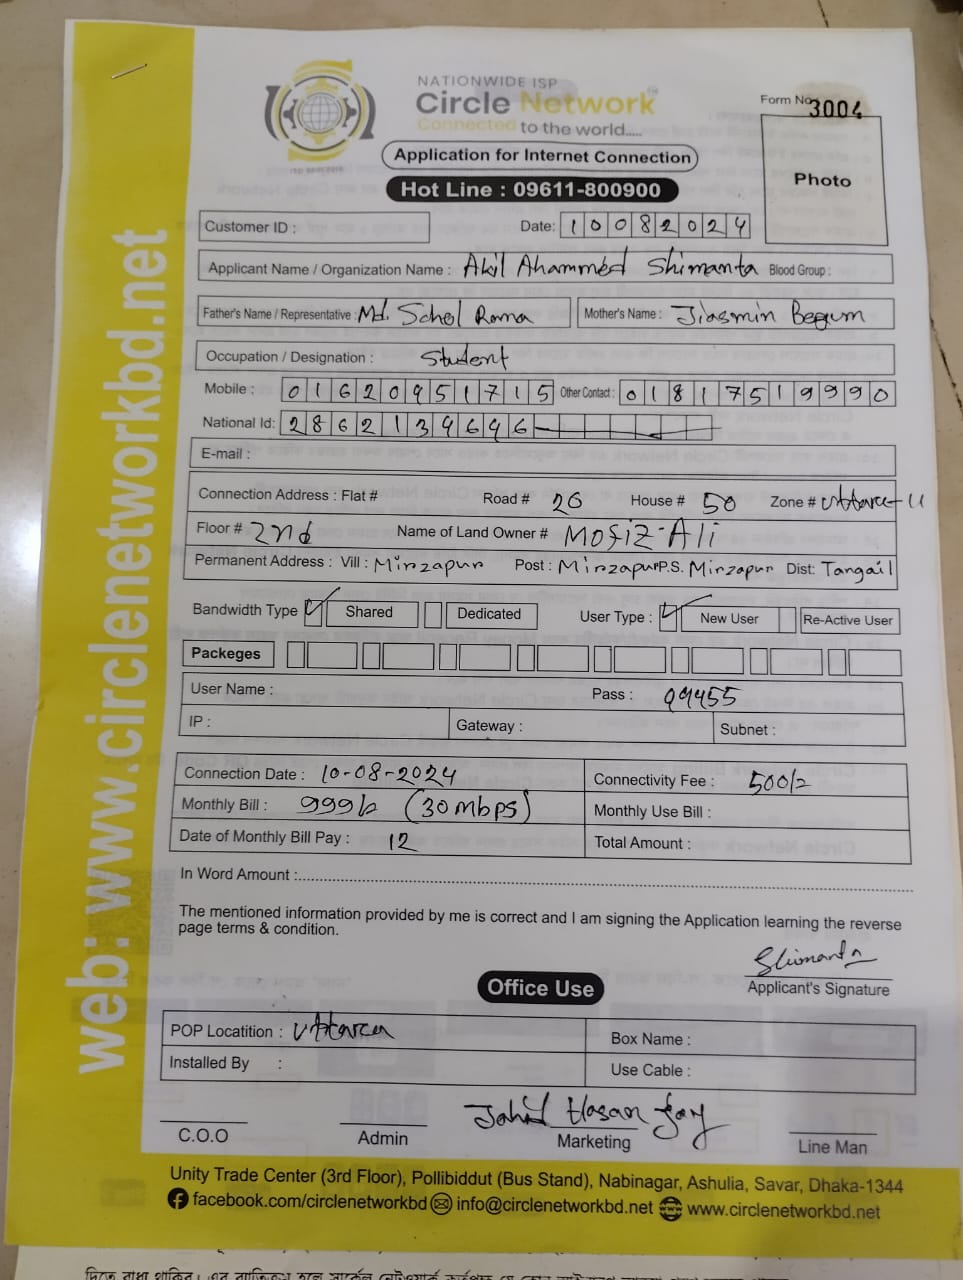 NATIONWIDE ISP
Circle Network
Connected to the world.....
Form No. 3004
Application for Internet Connection
Photo
Hot Line : 09611-800900
Customer ID :
Date: 10082024
Applicant Name / Organization Name : Akil Ahammed Shimanta Blood Group :
Father's Name / Representative : Md. Sohel Rama Mother's Name : Jiasmin Begum
Occupation / Designation : Student
Mobile : 01620951715 Other Contact : 01817519990
National Id: 2862139696
E-mail :
Connection Address : Flat # Road # 26 House # 50 Zone # Uttara-11
Floor # 2nd Name of Land Owner # Mofiz-Ali
Permanent Address : Vill : Mirzapur Post : Mirzapur P.S. Mirzapur Dist: Tangail
Bandwidth Type Shared Dedicated User Type : New User Re-Active User
Packeges
User Name : Pass : 99455
IP : Gateway : Subnet :
Connection Date : 10-08-2024 Connectivity Fee : 500/=
Monthly Bill : 999/= (30mbps) Monthly Use Bill :
Date of Monthly Bill Pay : 12 Total Amount :
In Word Amount :
The mentioned information provided by me is correct and I am signing the Application learning the reverse
page terms & condition.
Shimanta
Applicant's Signature
Office Use
POP Locatition : Uttara Box Name :
Installed By : Use Cable :
Jahid Hasan Joy
C.O.O Admin Marketing Line Man
Unity Trade Center (3rd Floor), Pollibiddut (Bus Stand), Nabinagar, Ashulia, Savar, Dhaka-1344
facebook.com/circlenetworkbd info@circlenetworkbd.net www.circlenetworkbd.net
web: www.circlenetworkbd.net